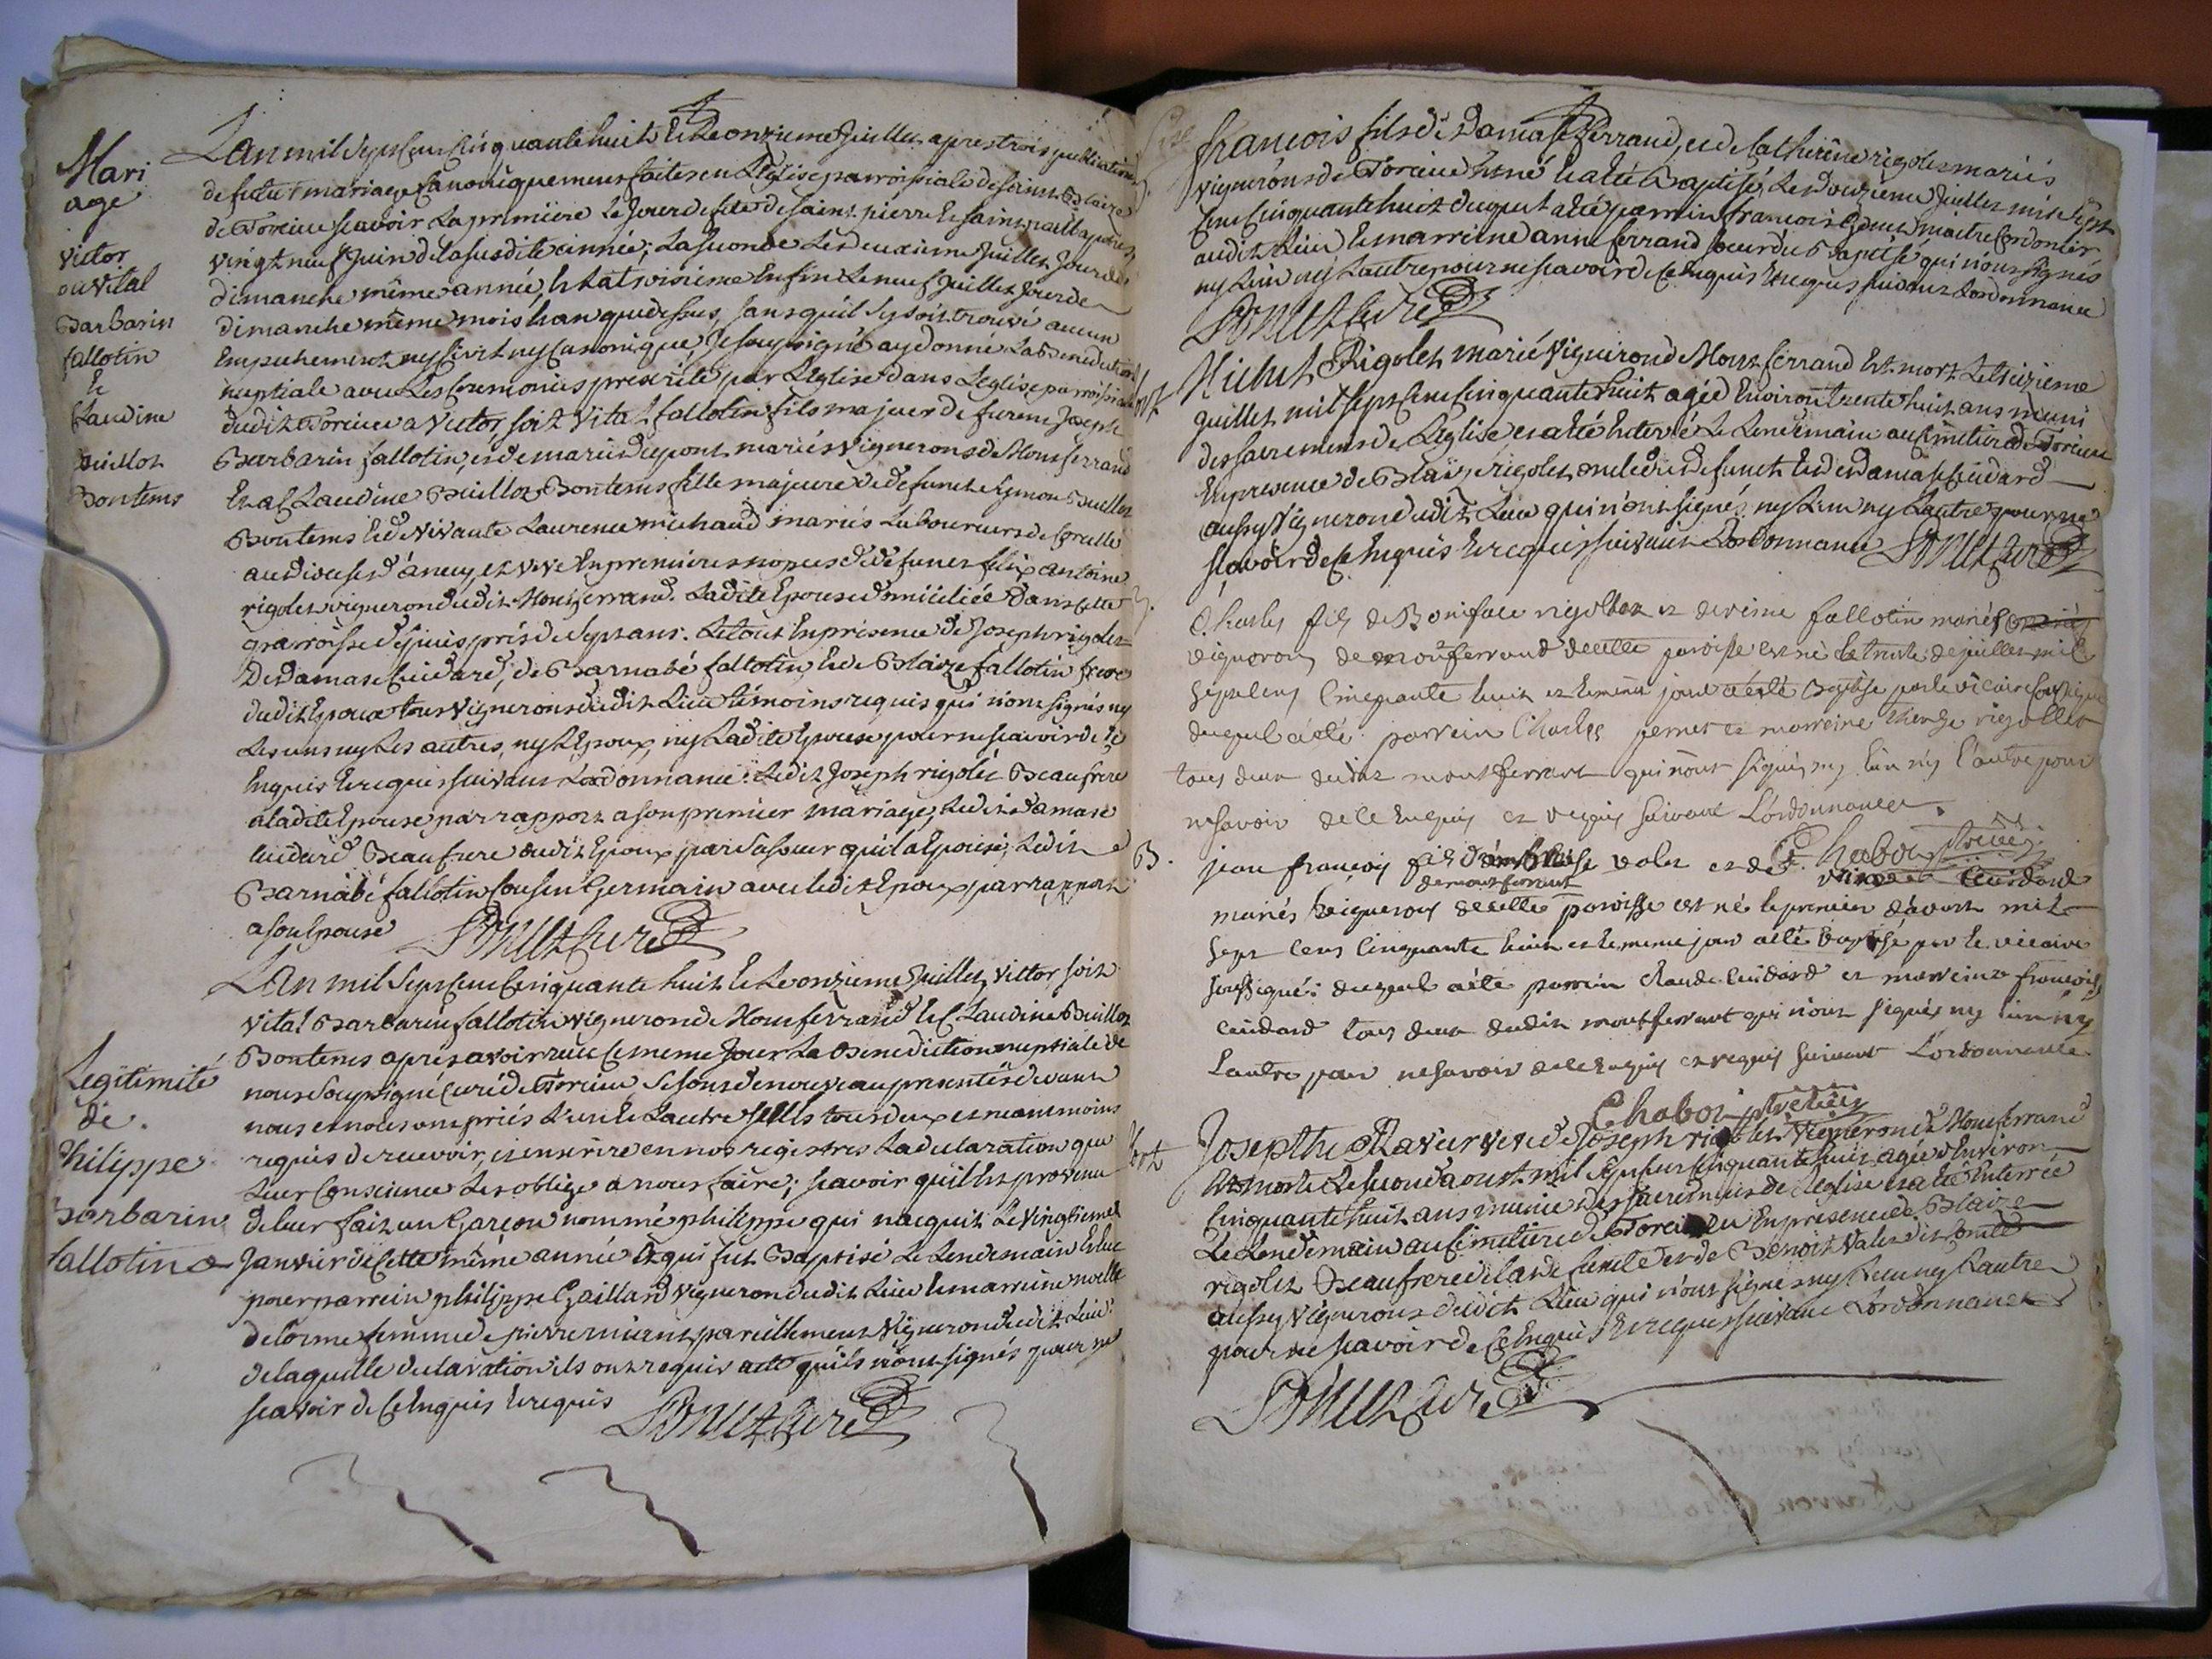 Mari
age
victor
ou vital
Barbarin
fallotin
et
Claudine
Buillot
Bontems
L'an mil sept cent cinquante huit et le onzieme Juillet apres trois publications
de futur mariage canoniquement faites en L'Eglise parroissiale de saint Blaise
de Torcieu scavoir La premiere Le Jour de fete de saint pierre et saint paul apotres
vingt neuf Juin de la susdite année; La seconde Le deuxieme Juillet Jour de
dimanche même année, et La troisieme Enfin Le neuf Juillet Jour de
dimanche même mois et an que dessus, sans qu'il s'y soit trouvé aucun
Empechement ny civil ny canonique, Je soussigné ay donné La Benediction
nuptiale avec Les ceremonies prescrites par L'Eglise dans L'eglise parroissiale
dudit Torcieu a victor soit vital fallotin fils majeur de furent Joseph
Barbarin fallotin, et de marie dupont mariés vignerons de Montferrand
Et a Claudine Buillot Bontems fille majeure de defunct Eymon Buillot
Bontems et de vivante Laurence michaud mariés Laboureurs de
au diocese d'anecy, et v.ve En premieres nopces de defunct felix antoine
rigolet vigneron dudit Montferrand. Ladite Epouse domiciliée dans cette
parroisse depuis près de sept ans. Le tout En présence de Joseph rigolet
De Damase Cuidard, de Barnabé fallotin, et de Blaize fallotin frere
dudit Epoux tous vignerons dudit Lieu témoins requis qui n'ont signés ny
Les uns ny Les autres, ny L'Epoux, ny Ladite Epouse pour ne scavoir de ce
Enquis et requis suivant L'ordonnance. Ledit Joseph rigolet Beaufrere
a ladite Epouse par rapport a son premier mariage, Ledit Damase
Cuidard Beaufrere audit Epoux par sa soeur qu'il a Epousé; Ledit
Barnabé fallotin Cousin Germain avec ledit Epoux par rapport
a son Epouse
Legitimité
de
Philippe
Barbarin
fallotin
L'An mil sept cent cinquante huit et Le onzieme Juillet, victor soit
vital Barbarin fallotin vigneron de Montferrand et Claudine Buillot
Bontems après avoir recu ce meme Jour La Benediction nuptiale de
nous Soussigné Curé de Torcieu se sont de nouveau presentés devant
nous et nous ont priés L'un et L'autre tous deux et neanmoins
requis de recevoir, et inscrire en nos registres La declaration que
Leur Conscience Les oblige a nous faire; scavoir qu'il est provenu
de leur fait un Garçon nommé philippe qui nacquit Le vingtieme
Janvier de cette même année Et qui fut Baptisé Le Lendemain Et eut
pour parrein philippe Gaillard vigneron dudit Lieu et marreine
delorme femme de pierre pareillement vigneron dudit Lieu
de laquelle declaration ils ont requis acte qu'ils n'ont signés pour ne
scavoir de ce Enquis et requis
francois fils de Damase ferrand, et de Catherine rigolet mariés
vignerons de Torcieu est né et a été Baptisé Le douzieme Juillet mil sept
cent cinquante huit duquel a été parrein francois maitre Cordonier
audit Lieu et marreine anne ferrand soeur du Baptisé qui n'ont signés
ny L'un ny L'autre pour ne scavoir de ce Enquis et requis suivant L'ordonnance
Mort
Michel Rigolet marié vigneron de Montferrand Est mort Le treizieme
Juillet mil sept cent cinquante huit agé d'Environ trente huit ans muni
des sacremens de L'eglise et a été Enterré Le Lendemain au cimetiere de Torcieu
En presence de Blaize rigolet oncle du defunct Et de Damase Cuidard
aussy vigneron dudit Lieu qui n'ont signés ny L'un ny L'autre pour ne
scavoir de ce Enquis et requis suivant L'ordonnance
Charles fils de Boniface rigollet et de reine fallotin mariés
vignerons de montferrand de cette paroisse est né le trente de juillet mil
sept cens cinquante huit et le meme jour a été Baptisé par le vicaire soussigné
duquel a été parrein Charles pernet et marreine rigollet
tous deux dudit montferrant qui n'ont signés ny l'un ny l'autre pour
ne savoir de ce Enquis et requis suivant L'ordonnance
B.
Jean françois fils d'ambroise valet et de Cuidard
mariés vignerons de montferrant de cette paroisse est né le premier d'avout mil
sept cens cinquante huit et le meme jour a été baptisé par le vicaire
soussigné: duquel a été parrein Claude Cuidard et marreine françoise
Cuidard tous deux dudit montferrant qui n'ont signés ny l'un ny
l'autre pour ne savoir de ce Enquis et requis suivant L'ordonnance
Mort
Josepthe Ravier veuve de Joseph rigolet vigneron de Montferrand
Est morte Le second aoust mil sept cent cinquante huit agée d'Environ
cinquante huit ans munie des sacremens de L'eglise et a été Enterrée
Le Lendemain au cimetiere de Torcieu En présence de Blaize
rigolet Beaufrere de la defuncte et de Benoit valet dit Comte
aussy vignerons dudit Lieu qui n'ont signé ny L'un ny L'autre
pour ne scavoir de ce Enquis et requis suivant L'ordonnance